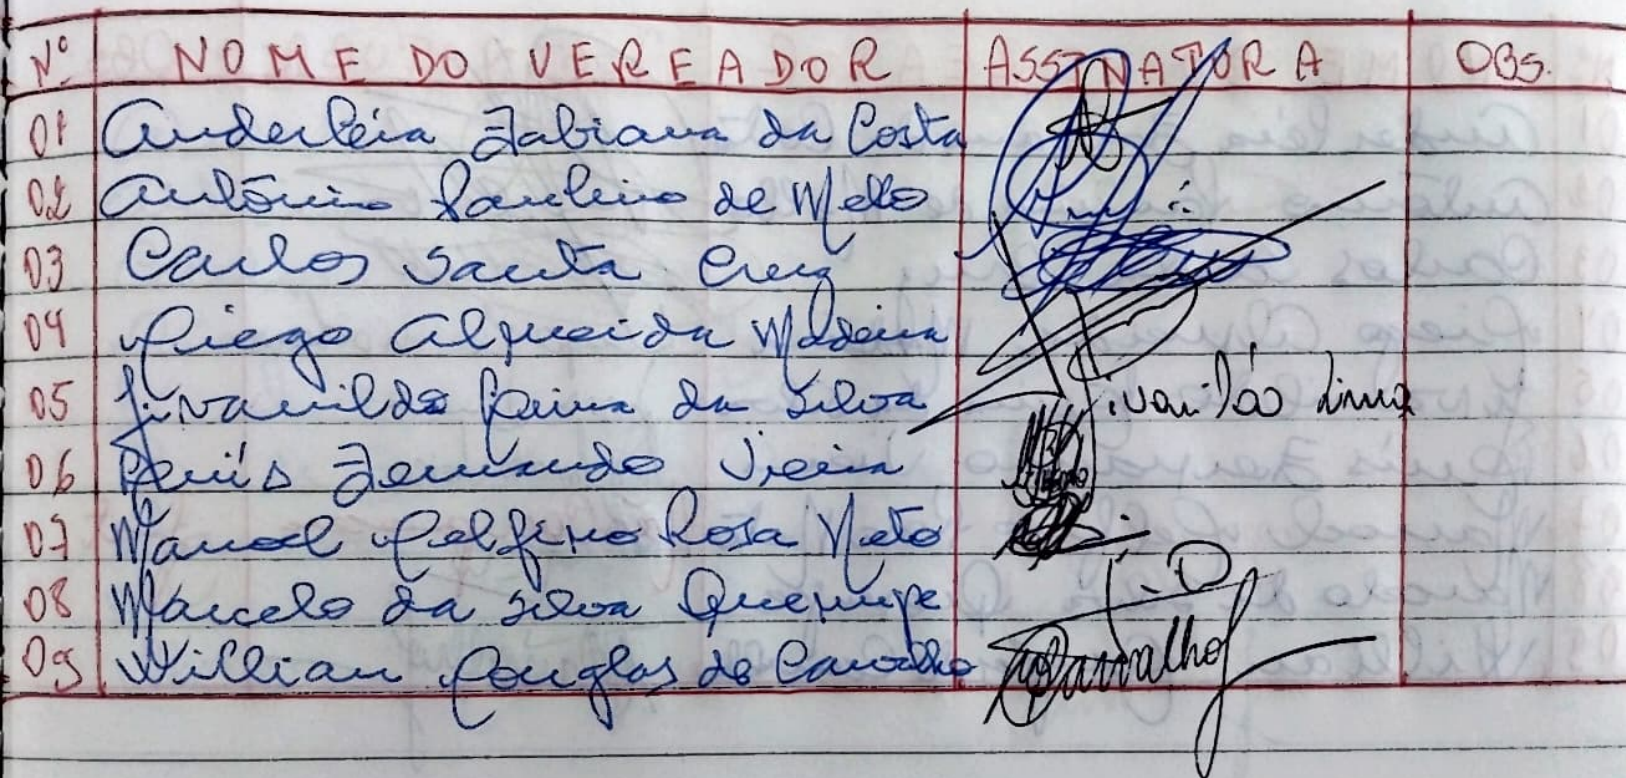 Nº NOME DO VEREADOR ASSINATURA OBS.
01 Anderléia Fabiana da Costa
02 Antônio Paulino de Mello
03 Carlos Santa Cruz
04 Diego Almeida Madeira
05 Jivanildo Paiva da Silva Jivanildo Lima
06 Luís Fernando Vieira
07 Manoel Delfino Rosa Neto
08 Marcelo da Silva Quexupe
09 Willian Douglas de Carvalho Carvalho